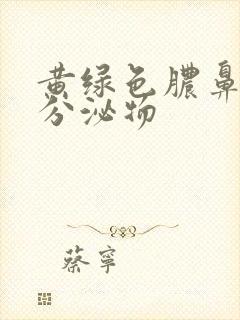 黄绿色膿鼻
分泌物
蔡寧